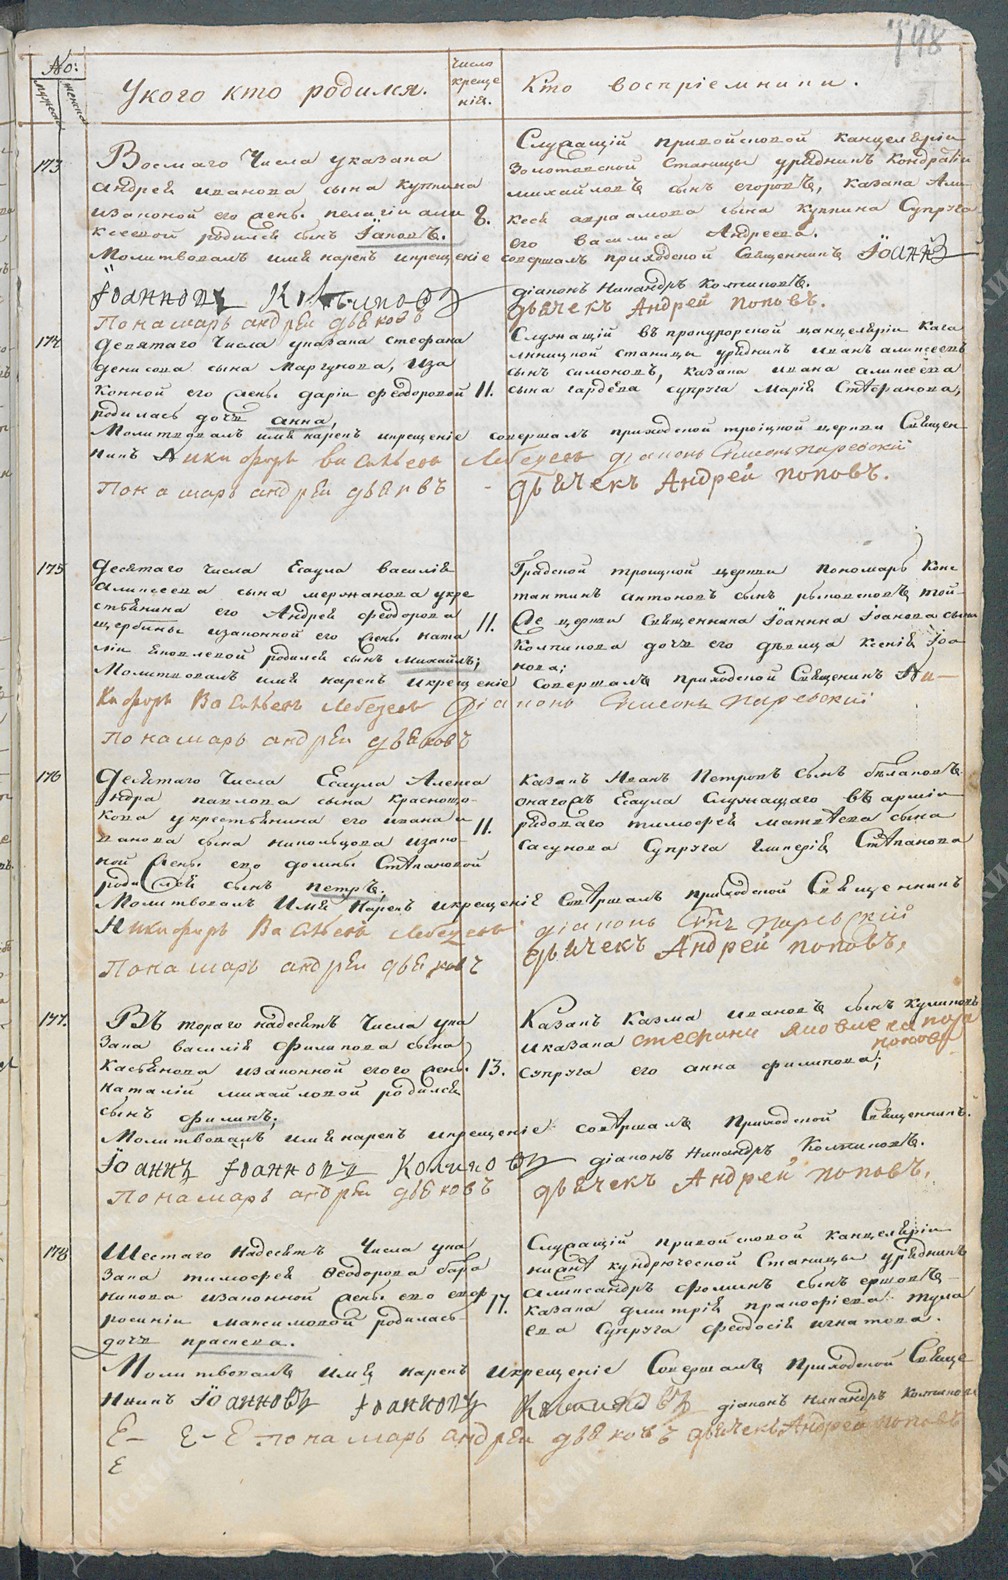 198
No:
мужеска
женска
У кого кто родился.
число креще нія.
Кто воспріемники.
173
Восмаго Числа у казака
андрея иванова сына куккина
изаконой его жены пелагіи али
ксеевой родился сынъ Іаковъ.
8.
Служащій привойсковой канцеляріи
Золотовской Станицы урядникъ кондратіи
михайловъ сынъ егоровъ, казака Али
ксея авраамова сына куккина Супруга
его василиса Андреева.
Молитвовалъ имя нарекъ икрещеніе совершалъ приходской Священникъ Іоаннъ
Іоанновъ Колпиковъ
діаконъ Никандръ Колпиковъ.
Понамарь андреи дьяковъ
дьячекъ Андрей поповъ.
174
девятаго числа указака стефана
денисова сына Маргунова, иза
конной его жены даріи феодоровой
родилась дочь анна,
11.
Служащій въ прокурорской канцеляріи Кага
льницкой станицы урядникъ иванъ аликсеевъ
сынъ симоновъ, казака ивана аликсеева
сына гардева супруга Марія Стефанова,
Молитвовалъ имя нарекъ икрещеніе совершалъ приходской троіцкой церкви Священ
никъ Никифоръ васильевъ Лебедевъ діаконъ Симеонъ паревскій
Понамарь андреи дьяковъ - дьячекъ Андрей поповъ.
175
десятаго числа Есаула василія
аликсеева сына мержанова укре
стьянина его Андрея феодорова
щербины изаконной его жены ната
ліи яковлевой родился сынъ михаилъ;
11.
Градской троицкой церкви пономарь Конс
тантинъ антоновъ сынъ рыковсковъ той-
же церкви Священника Іоанна Іоанова сына
Колпикова дочь его дѣвица ксенія Іоа
нова;
Молитвовалъ имя нарекъ икрещеніе совершалъ приходской Священикъ Ни-
кифоръ Васильевъ Лебедевъ діаконъ Симеонъ паревскій
понамарь андреи дьяковъ
176
Десятаго числа Есаула Алекса
ндра павлова сына Краснощо-
кова у крестьянина его ивана и
ванова сына никольцова изако-
ной жены его домны Стѣпановой
родился сынъ петръ;
11.
казакъ Иванъ Петровъ сынъ бѣлаковъ
онагожъ Есаула Служащаго въ арміи
рядоваго тимофея матвѣева сына
Сасунова Супруга гликерія Стѣпанова
Молитвовалъ Имя Нарекъ икрещеніе Совѣршалъ приходской Священникъ
Никифоръ Васильевъ Лебедевъ діаконъ Сим паревскій
понамарь андреи дьяковъ дьячекъ Андрей поповъ,
177.
Въ тораго надесять Числа у ка
Зака василія Филипова сына
Касьянова изаконной егого жены
наталіи михайловой родился
сынъ филипъ;
13.
Казакъ Казма ивановъ сынъ куликовъ
иказака стефана яковлева пода
поповa
супруга его анна филипова;
Молитвовалъ имя нарекъ икрещеніе: совѣршалъ Приходской Священникъ.
Іоаннъ Іоанновъ Колпиковъ діаконъ Никандръ Колпиковъ.
Понамарь андреи дьяковъ дьячекъ Андрей поповъ.
178
Шестаго надесять Числа у ка
Зака тимофея Ѳеодорова бара
никова изаконной жены его евф
росиніи Максимовой родилась
дочь прасковa.
17.
Служащій привойсковой канцеляріи
нижнѣ кундрюческой Станицы урядникъ
аликсандръ фоминъ сынъ ершовъ
казака дмитрія пракофіева тума
ева Супруга феодосія игнатова.
Молитвовалъ имя нарекъ икрещеніе Совершалъ Приходской Свяще
нникъ Іоанновъ Іоанновъ Колпиковъ діаконъ Никандръ Колпиковъ
Е - Е - Е понамарь андреи дьяковъ дьячекъ Андрей поповъ
Е